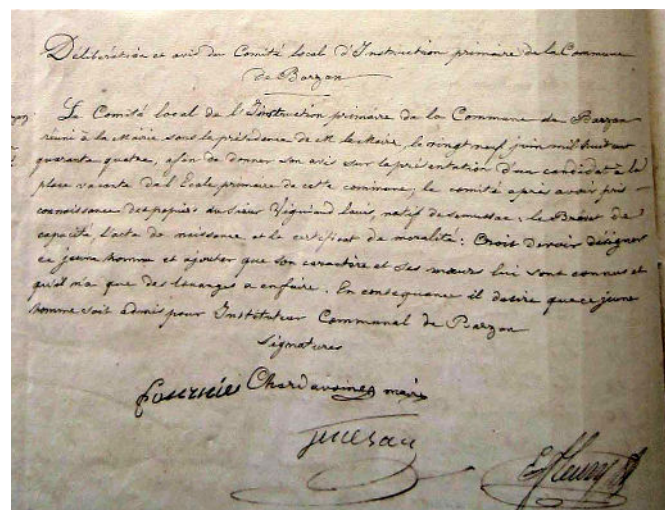 Délibération et avis du Comité local d'Instruction primaire de la Commune
de Barzan
Le Comité local de l'Instruction primaire de la Commune de Barzan
réuni à la Mairie sous la présidence de M. le Maire, le vingt neuf juin mil huit cent
quarante quatre, afin de donner son avis sur la présentation d'un candidat à la
place vacante de l'Ecole primaire de cette commune; le comité après avoir pris
connaissance des papiers du sieur Viguiaud louis, natif de semussac; le Brevet de
capacité, l'acte de naissance et le certificat de moralité: Croit devoir désigner
ce jeune homme et ajouter que son caractère et ses mœurs lui sont connus et
qu'il n'a que des louanges a en faire. En conséquence il desire que ce jeune
homme soit admis pour Instituteur Communal de Barzan
Signatures
Chardavoine maire
E Fleury